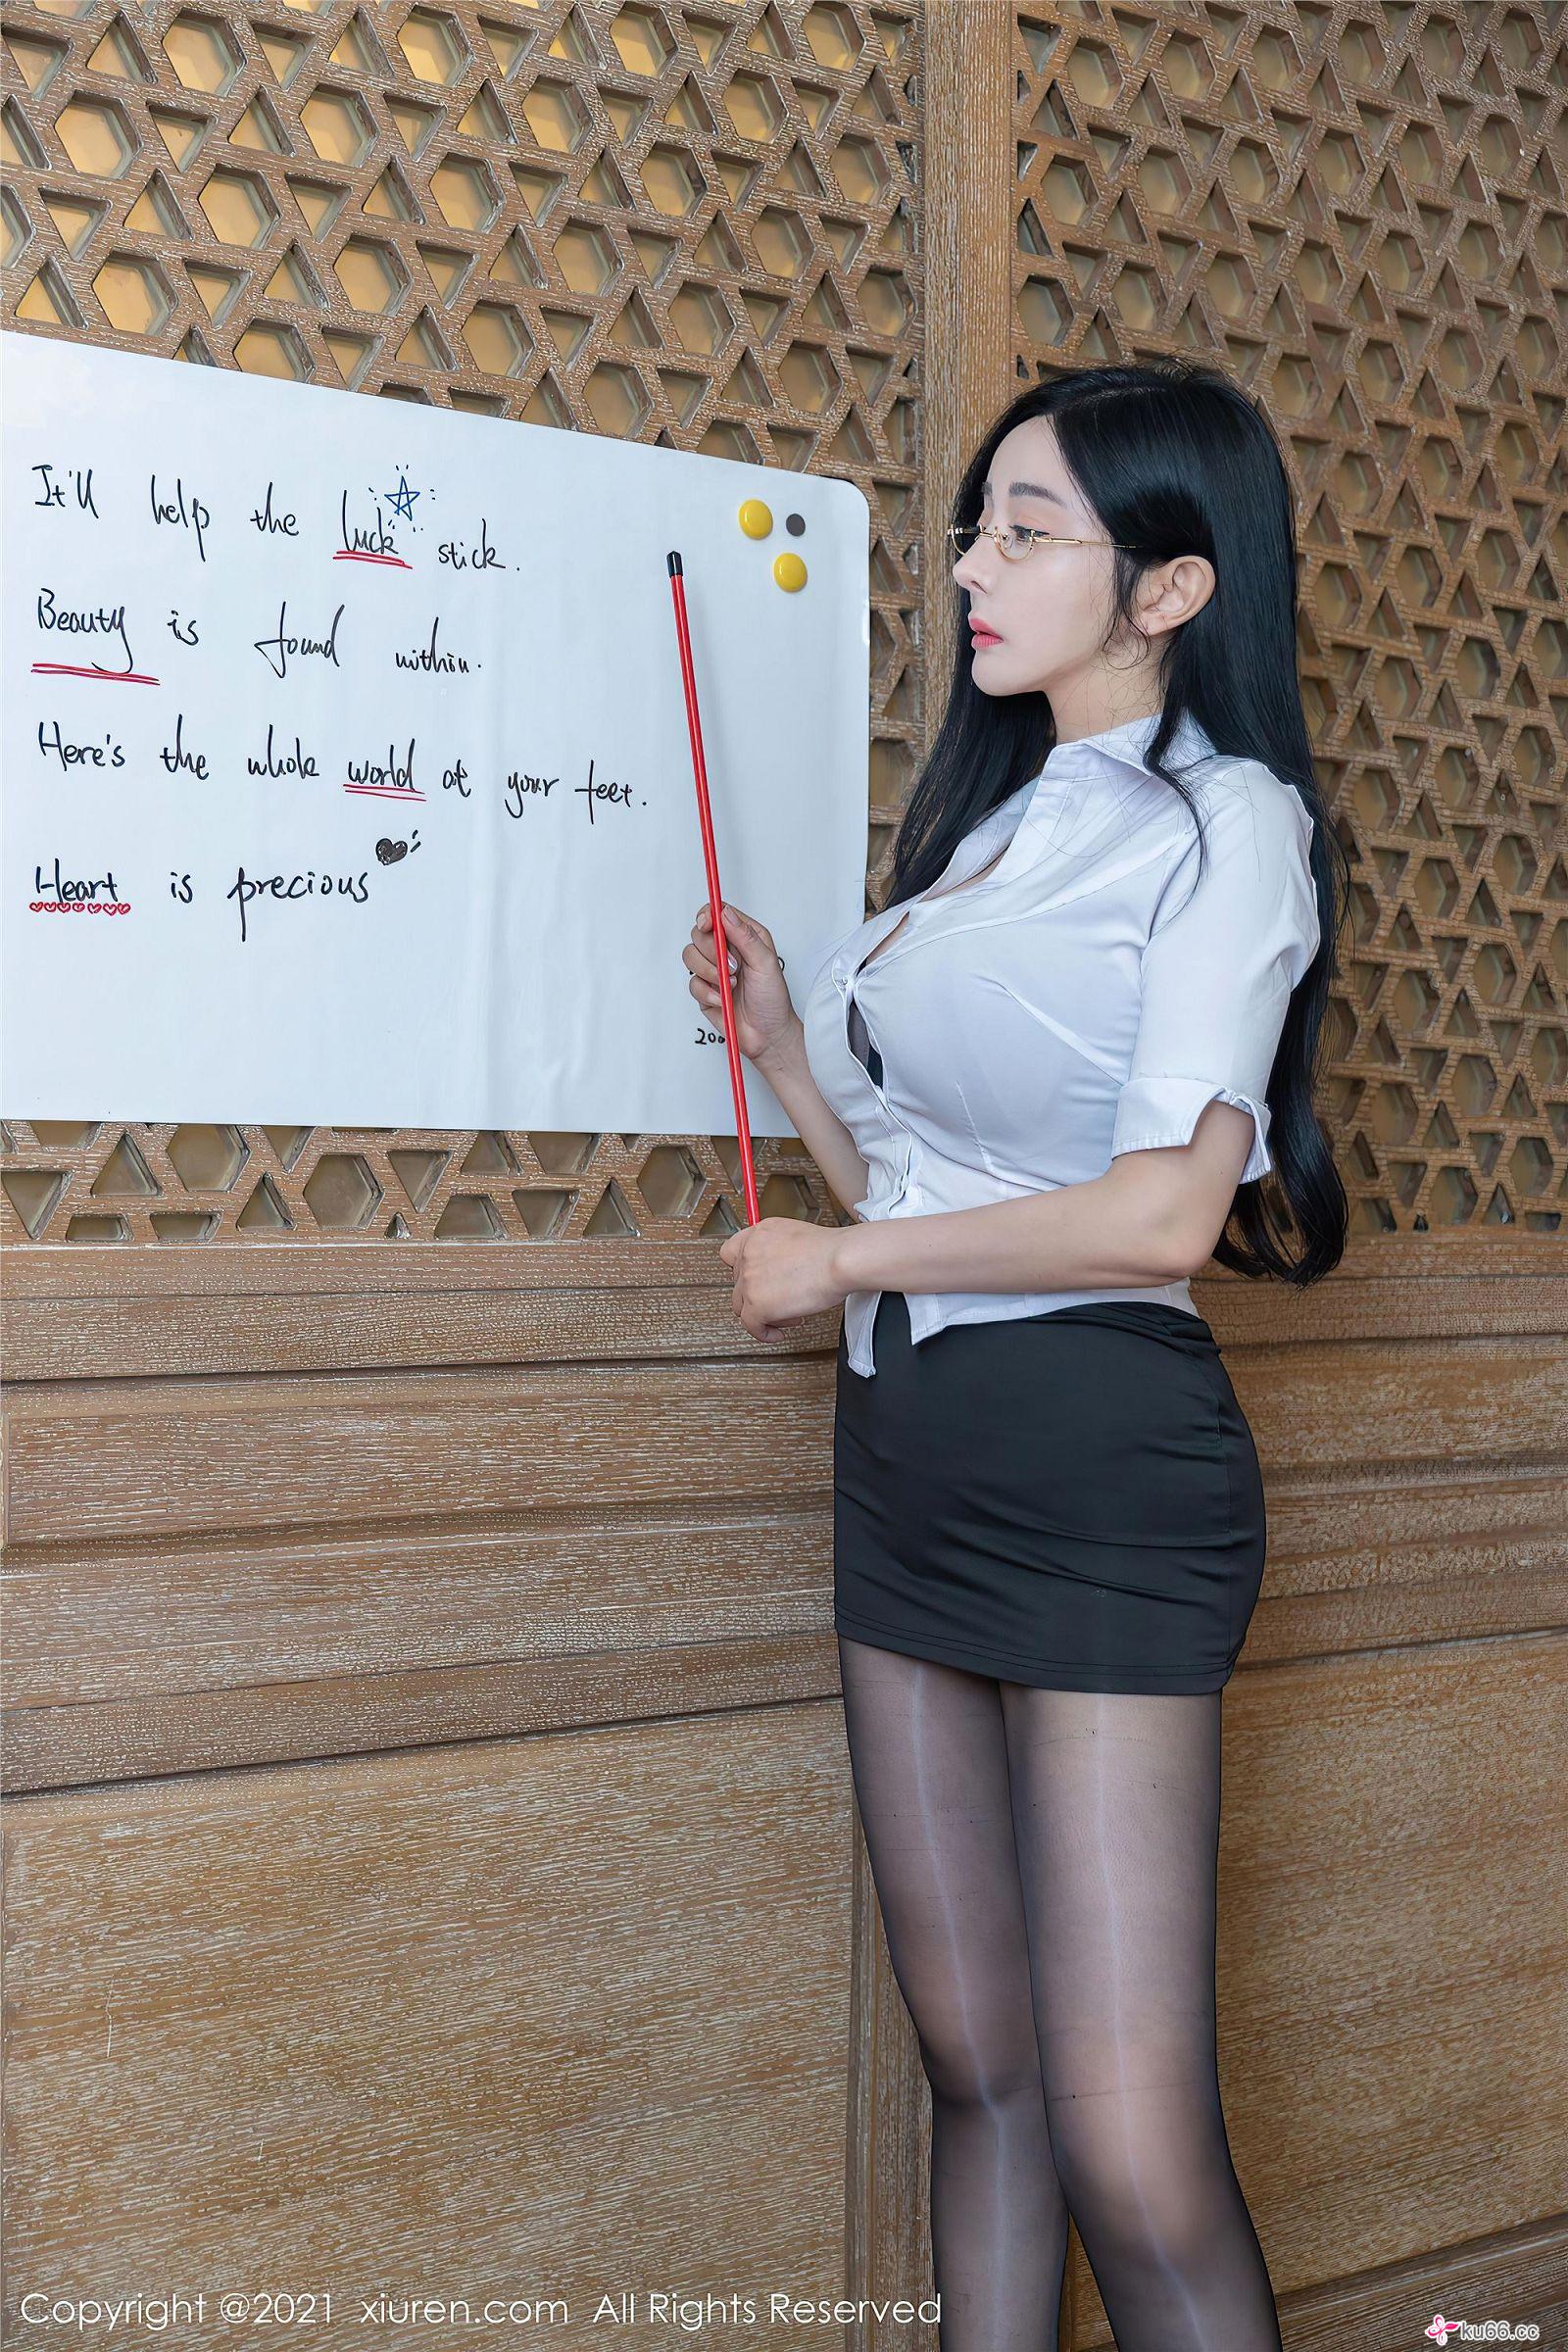 It'll help the luck stick.
Beauty is found within.
Here's the whole world at your feet.
Heart is precious
Copyright @2021 xiuren.com All Rights Reserved
ku66.cc